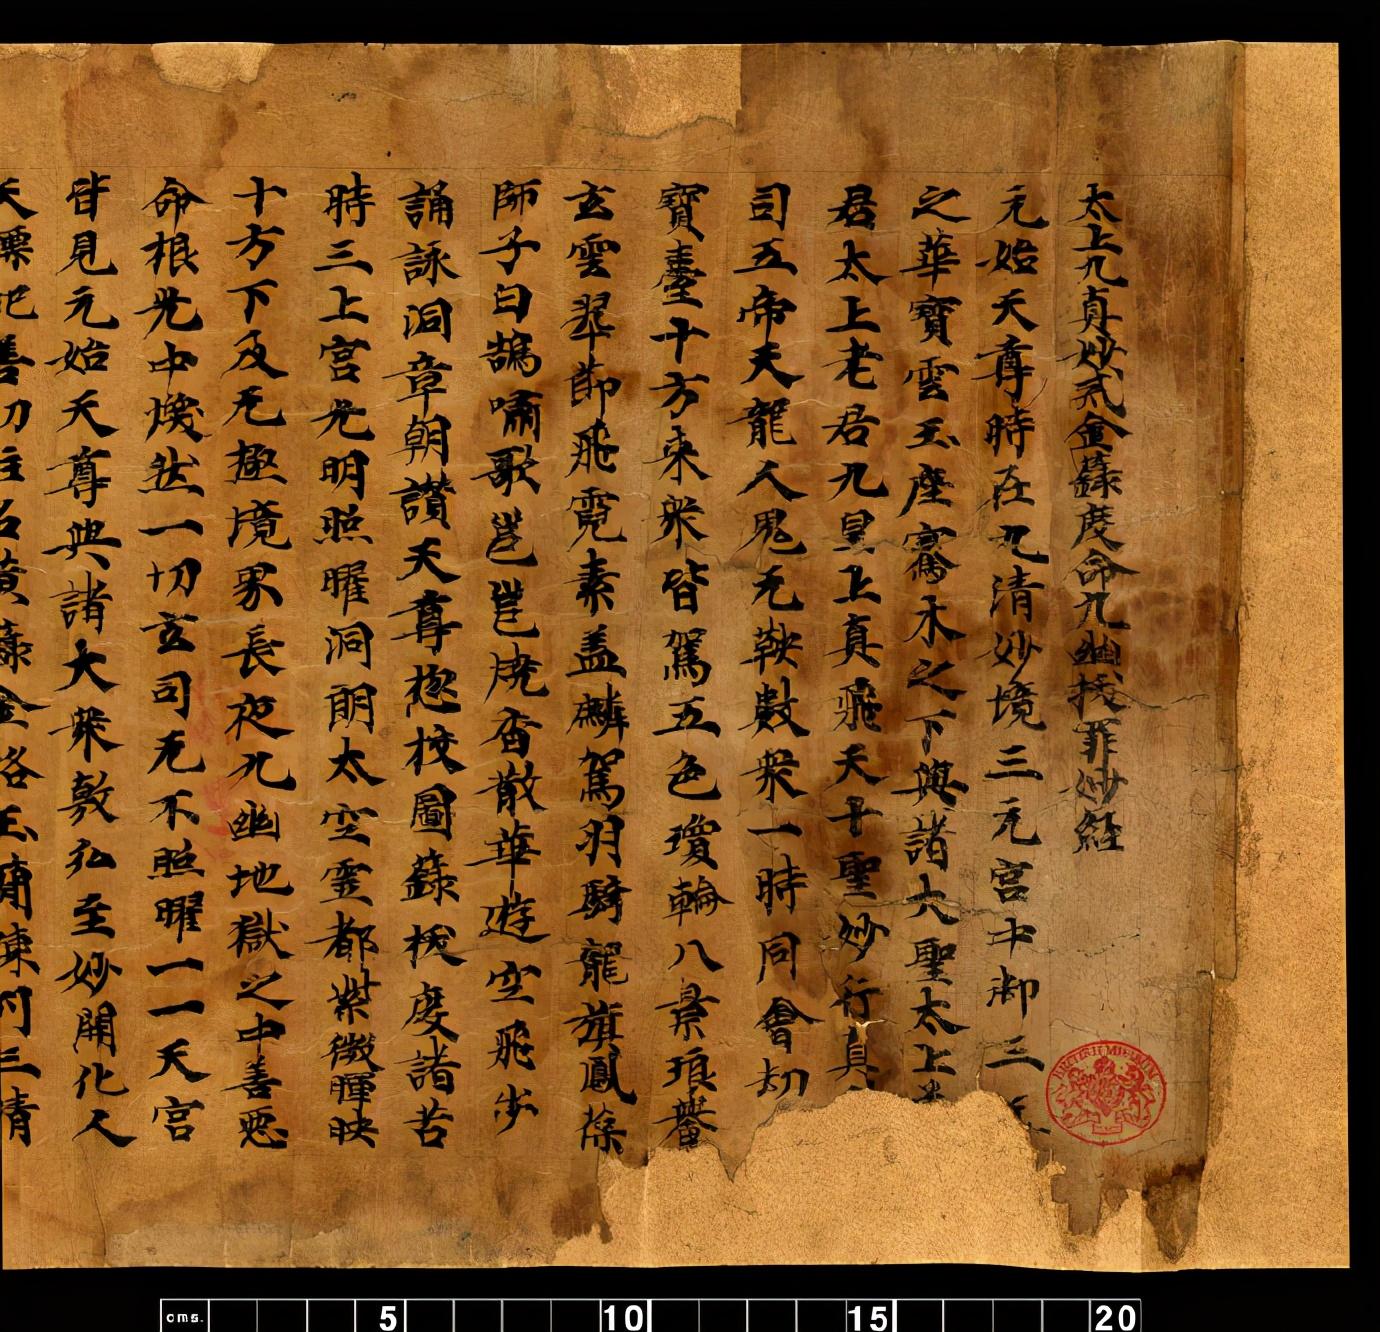 太上九真妙戒金籙度命九幽拔罪妙經
元始天尊時在九清妙境三元宮中御三
之華寶雲玉座騫木之下與諸大聖太上
君太上老君九皇上真飛天十聖妙行真
司五帝天龍人鬼无鞅數衆一時同會劫
寶臺十方來衆皆駕五色瓊輪八景琅轝
玄雲翠節飛霓素蓋麟駕羽騎龍旗鳳葆
師子白鵠嘯歌邕邕燒香散華遊空飛步
誦詠洞章朝讃天尊惣校圖籙拔度諸苦
時三上宮光明照曜洞朗太空靈都紫微暉映
十方下及无極境界長夜九幽地獄之中善惡
命根光中煥然一切玄司无不照曜一一天宮
皆見元始天尊與諸大衆敷弘至妙開化人
天 善功 名黃籙金格玉 三清
BRITISH MUSEUM
cms. 5 10 15 20